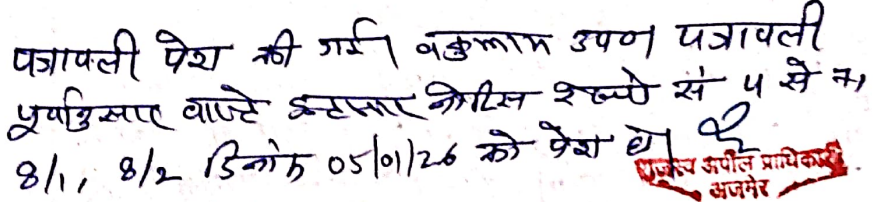 पत्रावली पेश की गई। वकुलाम उपण पत्रावली
पूर्वानुसार वास्ते इन्तजार नोटिस रेस्पो सं 5 से 7,
8/1, 8/2 दिनांक 05/01/26 को पेश हो।
राजस्व अपील प्राधिकारी
अजमेर